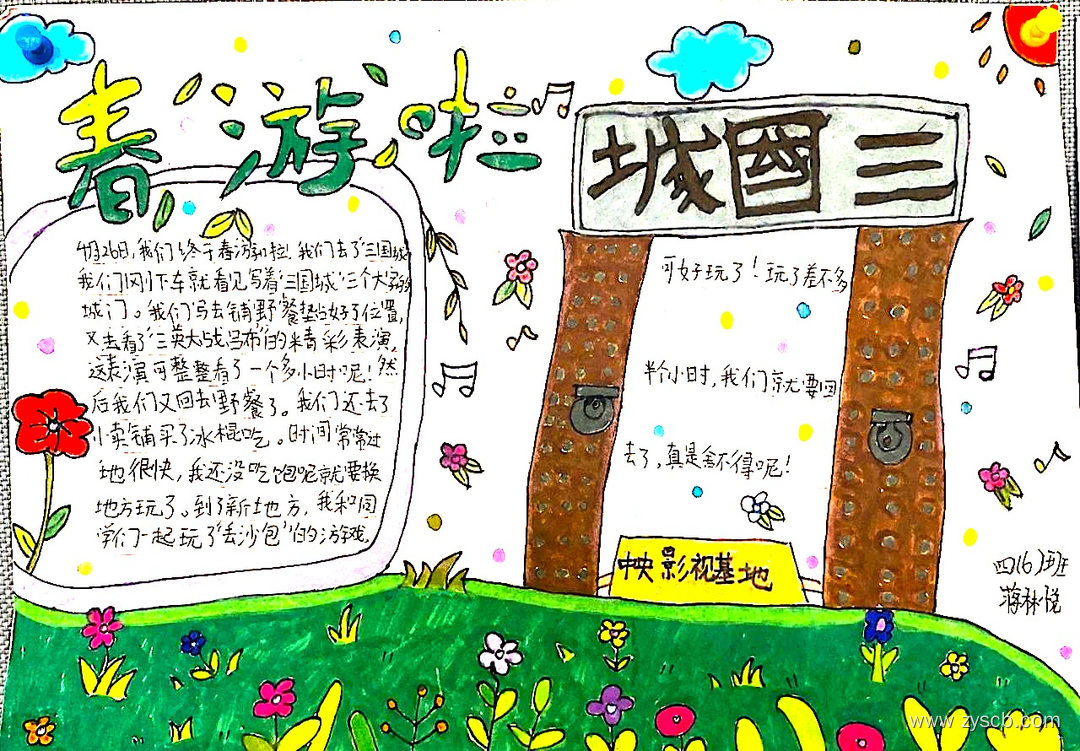 春游啦
城國三
4月26日，我们终于春游啦！我们去了三国城
我们刚下车就看见写着“三国城”三个大字的
城门。我们先去铺野餐垫占好了位置，
又去看了“三英大战吕布”的精彩表演，
这表演可整整看了一个多小时呢！然
后我们又回去野餐了。我们还去了
小卖铺买了冰棍吃。时间常常过
地很快，我还没吃饱呢就要换
地方玩了。到了新地方，我和同
学们一起玩了“丢沙包”的游戏，
可好玩了！玩了差不多
半个小时，我们就要回
去了，真是舍不得呢！
中央影视基地
四(6)班
蒋林悦
www.zyscb.com